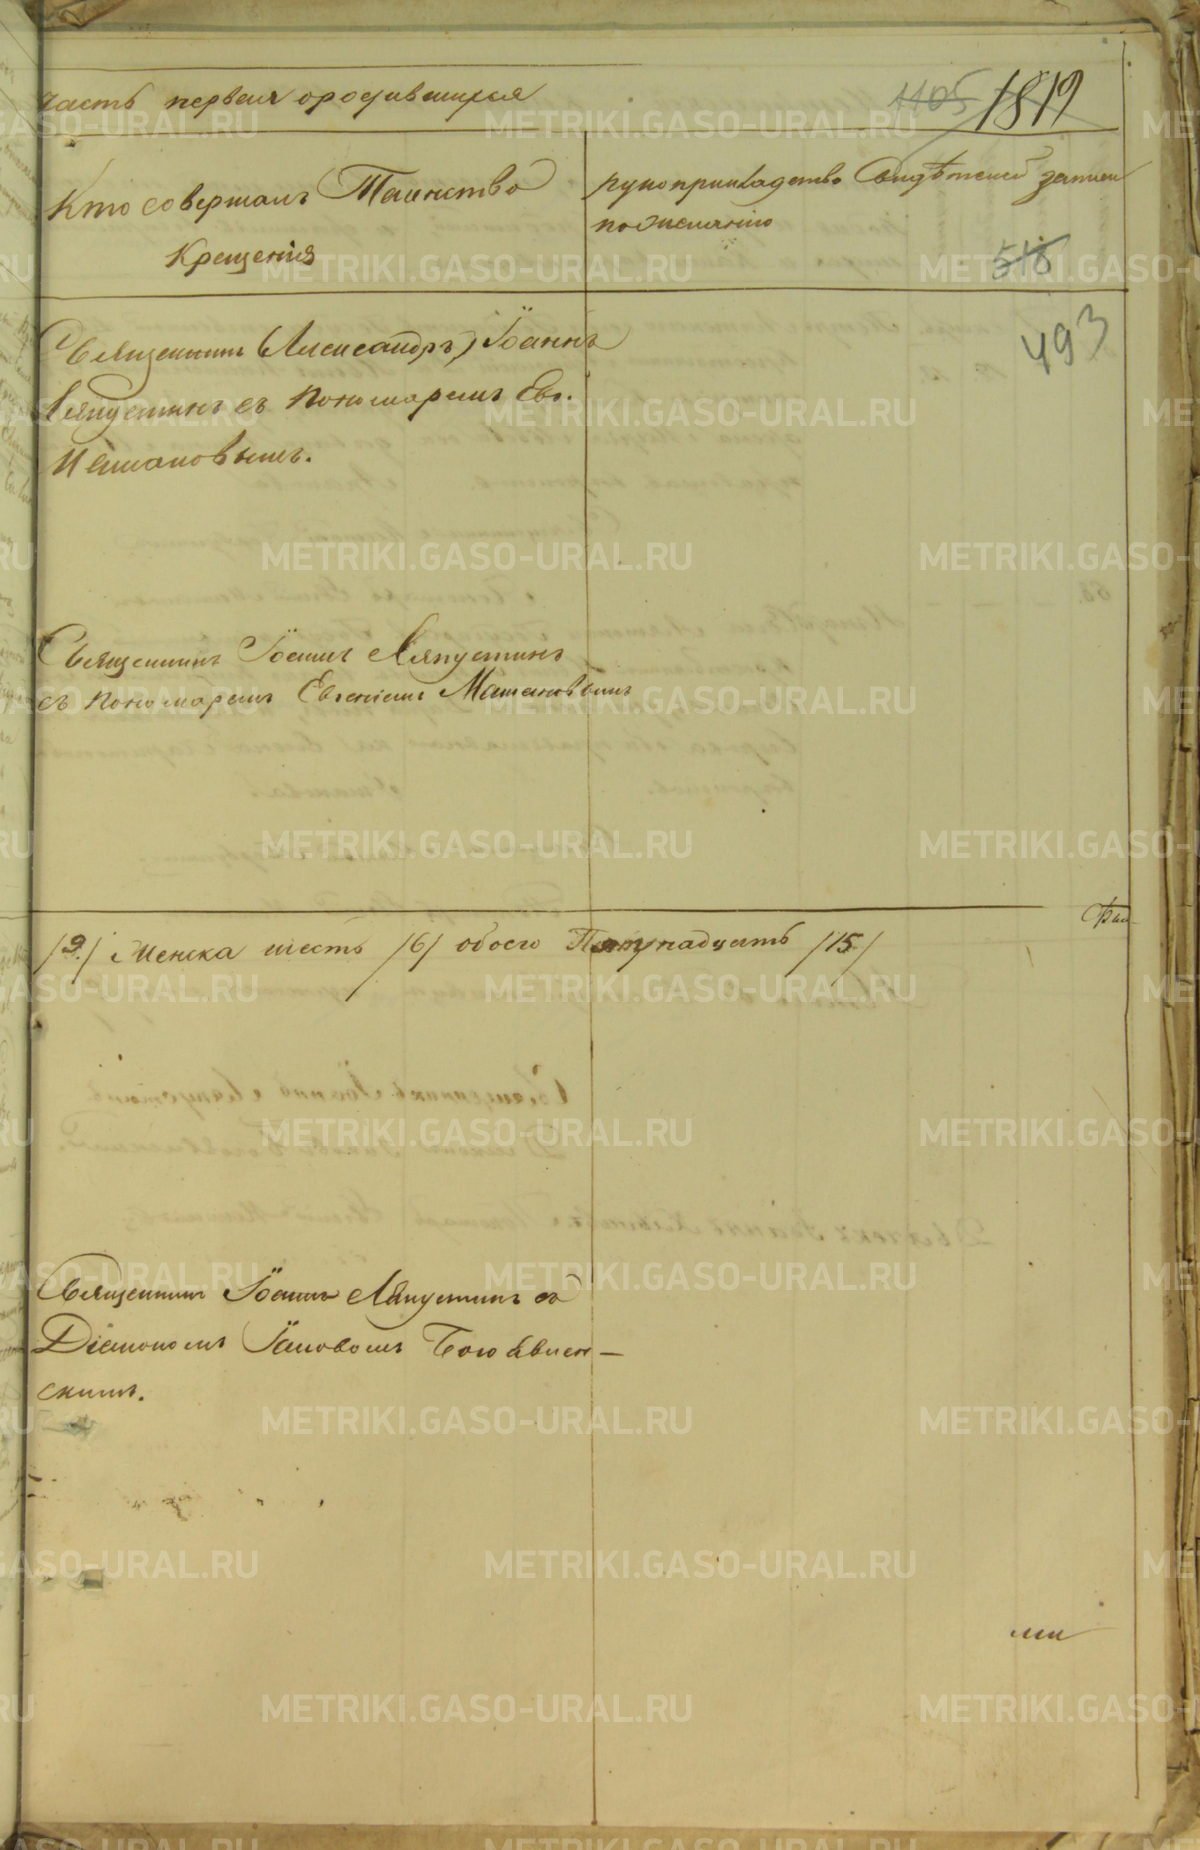 часть первая о родившихся
1105 1819
Кто совершалъ Таинство
Крещенія
рукоприкладство Свидѣтелей записи
по желанію
518
493
Священникъ (Александръ) Іоаннъ
Ляпустинъ съ пономаремъ Евг.
Машановымъ.
Священникъ Іоаннъ Ляпустинъ
съ пономаремъ Евгеніемъ Машановымъ
/9/ Женска шесть /6/ обоего Пятнадцать /15/
Священникъ Іоаннъ Ляпустинъ съ
Діакономъ Іаковомъ Богоявлен-
скимъ.
METRIKI.GASO-URAL.RU